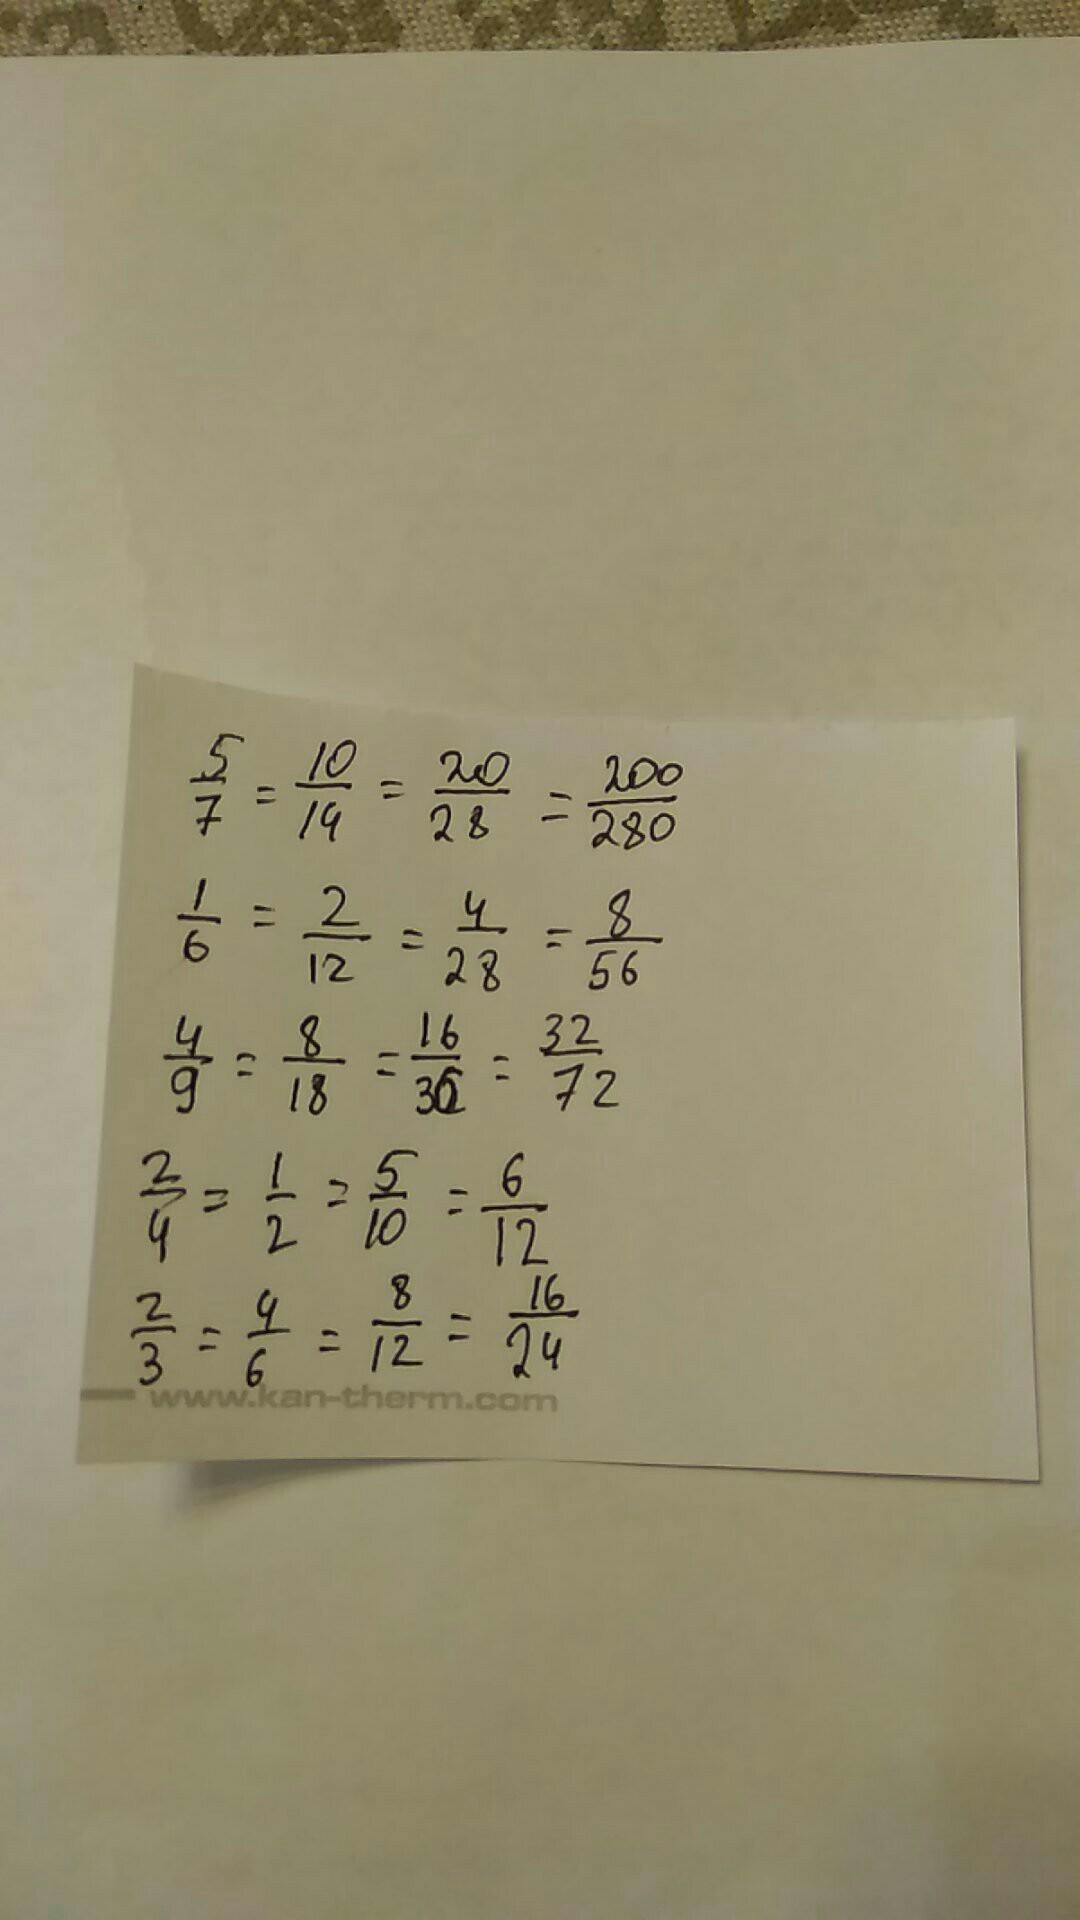 5/7 = 10/14 = 20/28 = 200/280
1/6 = 2/12 = 4/28 = 8/56
4/9 = 8/18 = 16/36 = 32/72
2/4 = 1/2 = 5/10 = 6/12
2/3 = 4/6 = 8/12 = 16/24
www.kan-therm.com